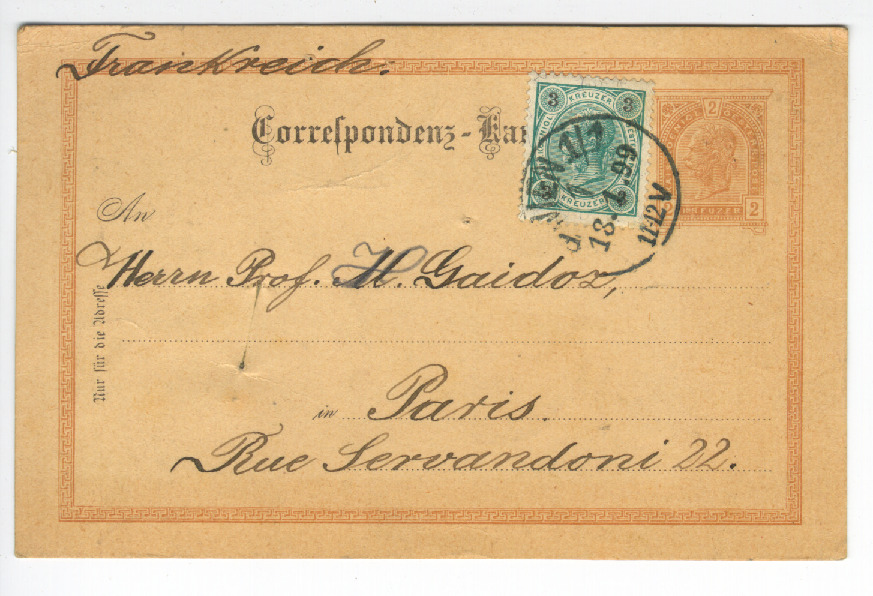 Frankreich.
Correspondenz-Kar
3 KREUZER 3
KREUZER
2
2 KREUZER 2
WIEN 1/1
18. 1. 99
11-12 V
An
Herrn Prof. H. Gaidoz,
Nur für die Adresse
in Paris.
Rue Servandoni 22.